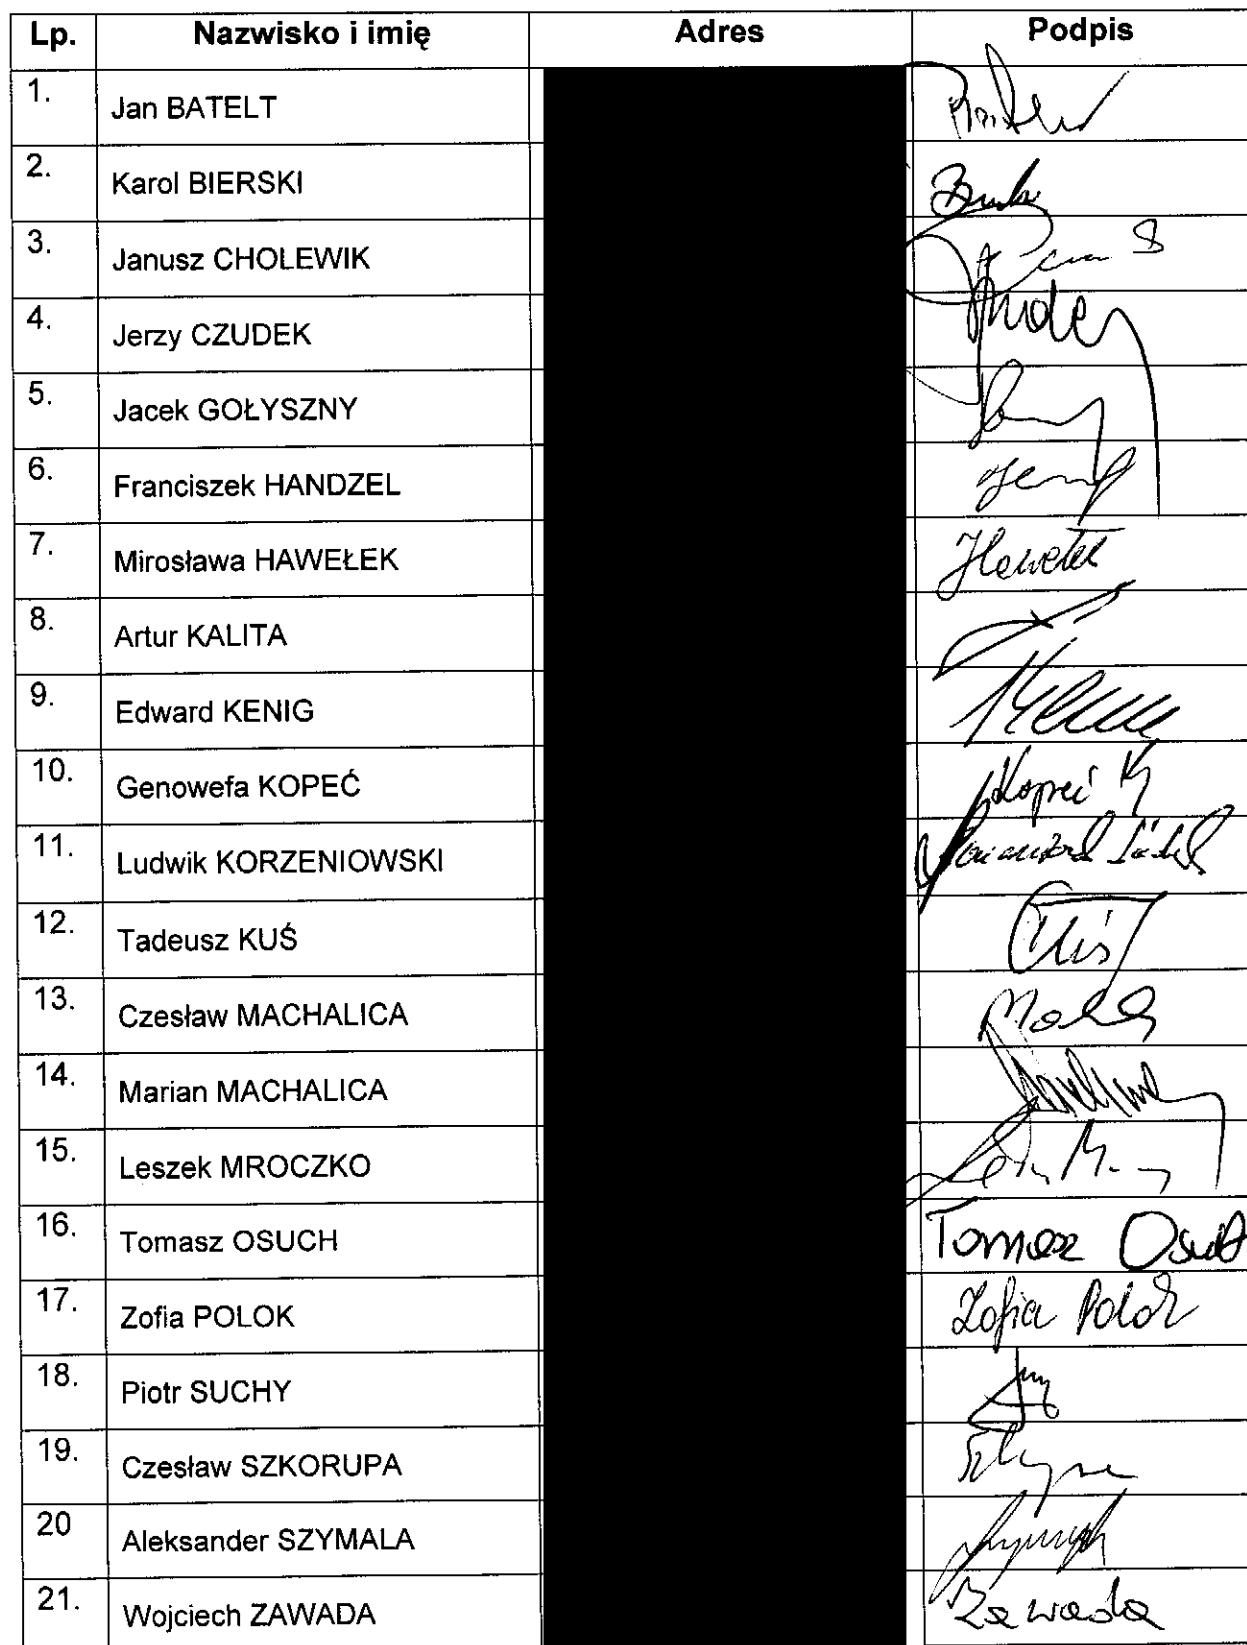 Lp. Nazwisko i imię Adres Podpis
1. Jan BATELT
2. Karol BIERSKI
3. Janusz CHOLEWIK
4. Jerzy CZUDEK
5. Jacek GOŁYSZNY
6. Franciszek HANDZEL
7. Mirosława HAWEŁEK Hawełek
8. Artur KALITA
9. Edward KENIG
10. Genowefa KOPEĆ Kopeć
11. Ludwik KORZENIOWSKI
12. Tadeusz KUŚ Kuś
13. Czesław MACHALICA
14. Marian MACHALICA
15. Leszek MROCZKO
16. Tomasz OSUCH Tomasz Osuch
17. Zofia POLOK Zofia Polok
18. Piotr SUCHY
19. Czesław SZKORUPA
20 Aleksander SZYMALA
21. Wojciech ZAWADA Zawada